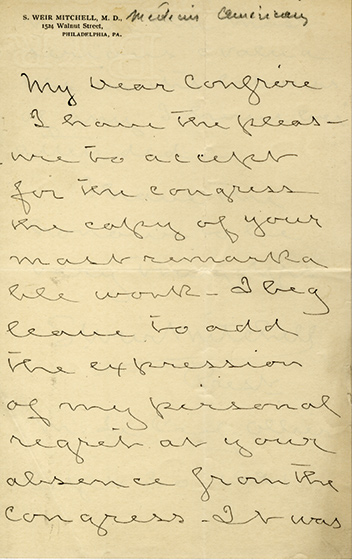 S. WEIR MITCHELL, M. D.,
1524 Walnut Street,
PHILADELPHIA, PA.
Medecin Americain
My dear Confrère
I have the pleas-
ure to accept
for the congress
the copy of your
most remarka
ble work - I beg
leave to add
the expression
of my personal
regret at your
absence from the
congress - It was